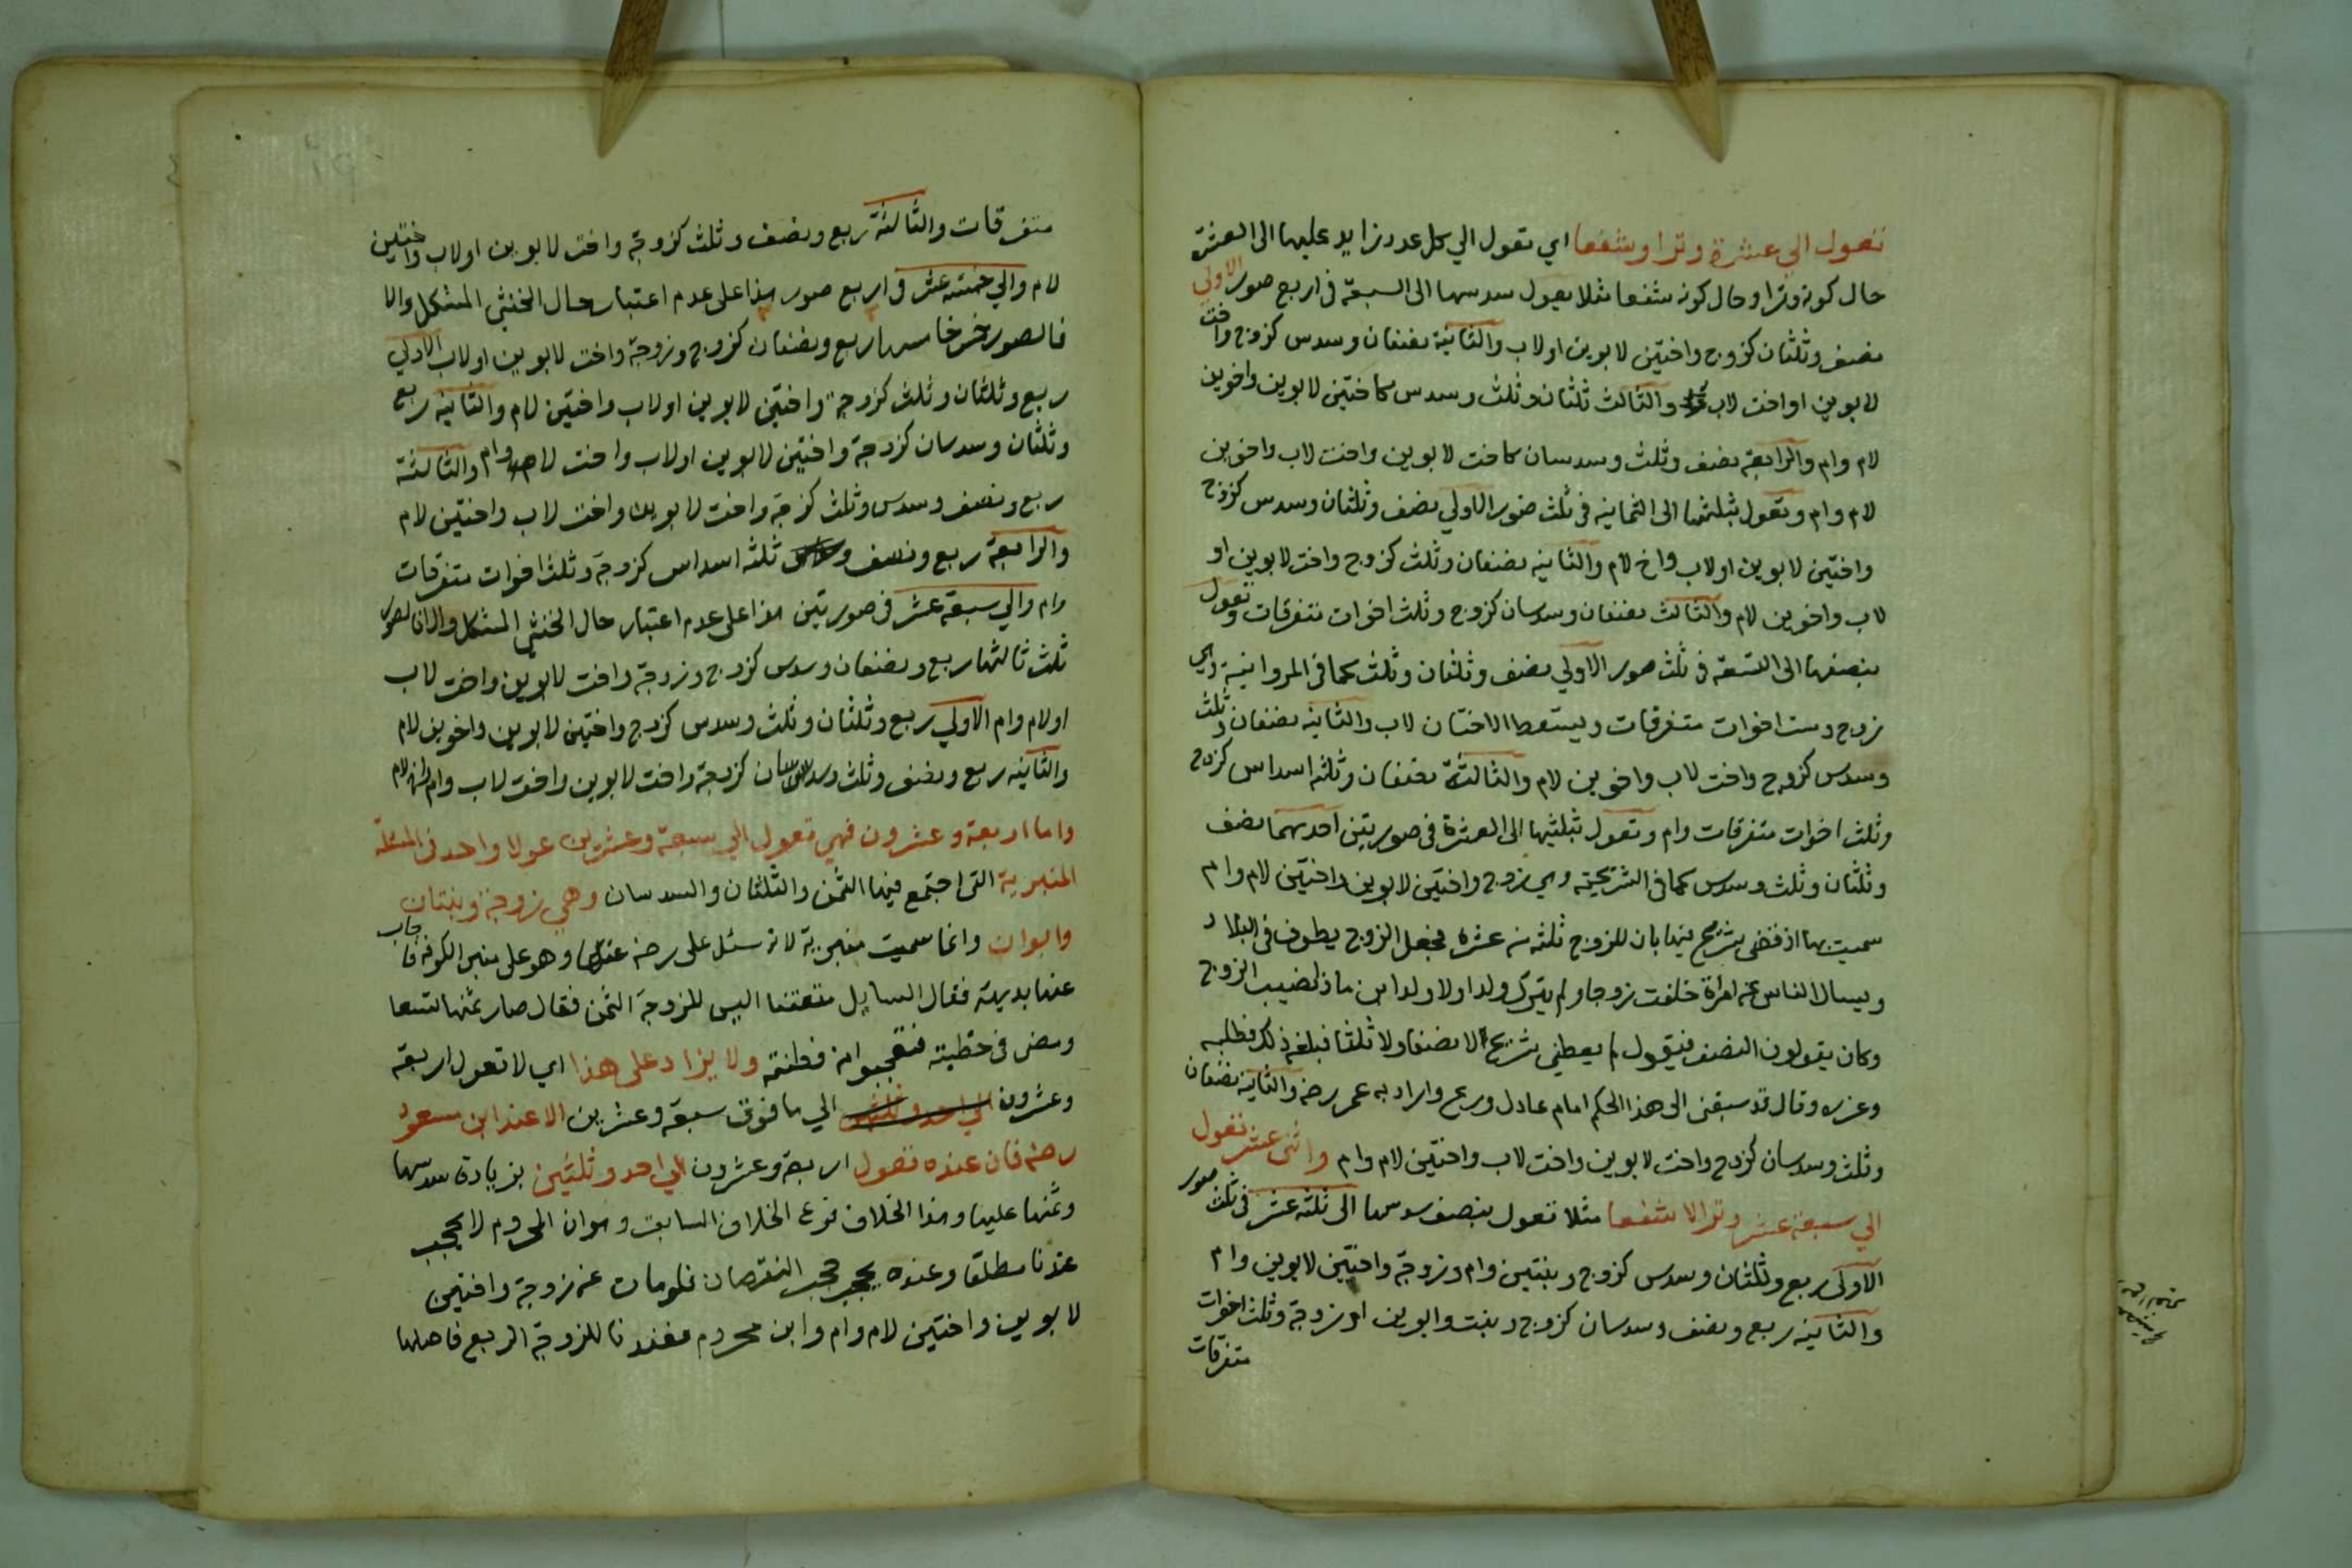 تعول الى عشرة وترا وشفعا اي تعول الي كل عدد زايد عليها الى العشرة
حال كونه وترا وحال كونه شفعا مثلا يعول سدسها الى السبعة في اربع صور الاولي
نصف وثلثان كزوج واختين لابوين او لاب والثانية نصفان وسدس كزوج واخت
لابوين او اخت لاب والثالث ثلثان وثلث وسدس كاختين لابوين واخوين
لام وام والرابعة نصف وثلث وسدسان كاخت لابوين واخت لاب واخوين
لام وام وتعول بثلثها الى الثمانيه في ثلث صور الاولي نصف وثلثان وسدس كزوج
واختين لابوين او لاب واخ لام والثانيه نصفان وثلث كزوج واخت لابوين او
لاب واخوين لام والثالث نصفان وسدسان كزوج وثلث اخوات متفرقات وتعول
بنصفها الى التسعة في ثلث صور الاولي نصف وثلثان وثلث كما في المروانية وهي
زوج وست اخوات متفرقات ويسقط الاختان لاب والثانيه نصفان وثلث
وسدس كزوج واخت لاب واخوين لام والثالثة نصفان وثلثه اسداس كزوج
وثلث اخوات متفرقات وام وتعول بثلثيها الى العشرة في صورتين احدهما نصف
وثلثان وثلث وسدس كما في الشريحية وهي زوج واختين لابوين واختين لام وام
سميت بها اذ قضى شريح فيها بان للزوج ثلثه من عشرة فجعل الزوج يطوف في البلاد
ويسال الناس عن امرأة خلفت زوجا ولم يترك ولدا ولا ولد ابن ماذا نصيب الزوج
وكان يقولون النصف فيقول لم يعطني شريح لا نصفا ولا ثلثا فبلغه ذلك فطلبه
وعزره وقال قد سبقنى الى هذا الحكم امام عادل ورع واراد به عمر رضه والثانية نصفان
وثلث وسدسان كزوج واخت لابوين واخت لاب واختين لام وام واثنى عشر تعول
الي سبعة عشر وترا لا شفعا مثلا تعول بنصف سدسها الى ثلثه عشر في ثلث صور
الاولى ربع وثلثان وسدس كزوج وبنتين وام وزوجة واختين لابوين وام
والثانيه ربع ونصف وسدسان كزوج وبنت وابوين او زوجة وثلث اخوات
متفرقات
متفرقات والثالثة ربع ونصف وثلث كزوجة واخت لابوين او لاب واختين
لام والي خمسة عشر في اربع صور هذا على عدم اعتبار حال الخنثى المشكل والا
فالصور خمس خامسها ربع ونصفان كزوج وزوجة واخت لابوين او لاب الاولي
ربع وثلثان وثلث كزوجة واختين لابوين او لاب واختين لام والثانيه ربع
وثلثان وسدسان كزوجة واختين لابوين او لاب واخت لام وام والثالثة
ربع ونصف وسدس وثلث كزوجة واخت لابوين واخت لاب واختين لام
والرابعة ربع ونصف وثلثه اسداس كزوجة وثلث اخوات متفرقات
وام والي سبعة عشر في صورتين هذا على عدم اعتبار حال الخنثى المشكل والا فالصور
ثلث ثالثها ربع ونصفان وسدس كزوج وزوجة واخت لابوين واخت لاب
او لام وام الاولي ربع وثلثان وثلث وسدس كزوج واختين لابوين واخوين لام
والثانيه ربع ونصف وثلث وسدسان كزوجة واخت لابوين واخت لاب وام
واما اربعة وعشرون فهي تعول الي سبعة وعشرين عولا واحد في المسئلة
المنبرية التى اجتمع فيها الثمن والثلثان والسدسان وهي زوجة وبنتان
وابوان وانما سميت منبرية لانه سئل على رضه عنها وهو على منبر الكوفه فاجاب
عنها بديهة فقال السايل متعنتا اليس للزوجة الثمن فقال صار ثمنها تسعا
ومضى في خطبته فتعجبوا من فطنته ولا يزاد على هذا اي لا تعول اربعة
وعشرون الي ما فوق سبعة وعشرين الا عند ابن مسعود
رضه فان عنده تعول اربعة وعشرون الي احد وثلثين بزيادة سدسها
وثمنها عليها وهذا الخلاف فرع الخلاف السابق وهو ان المحروم لا يحجب
عندنا مطلقا وعنده يحجب حجب النقصان فلو مات عن زوجة واختين
لابوين واختين لام وام وابن محروم فعندنا للزوجة الربع فاصلها